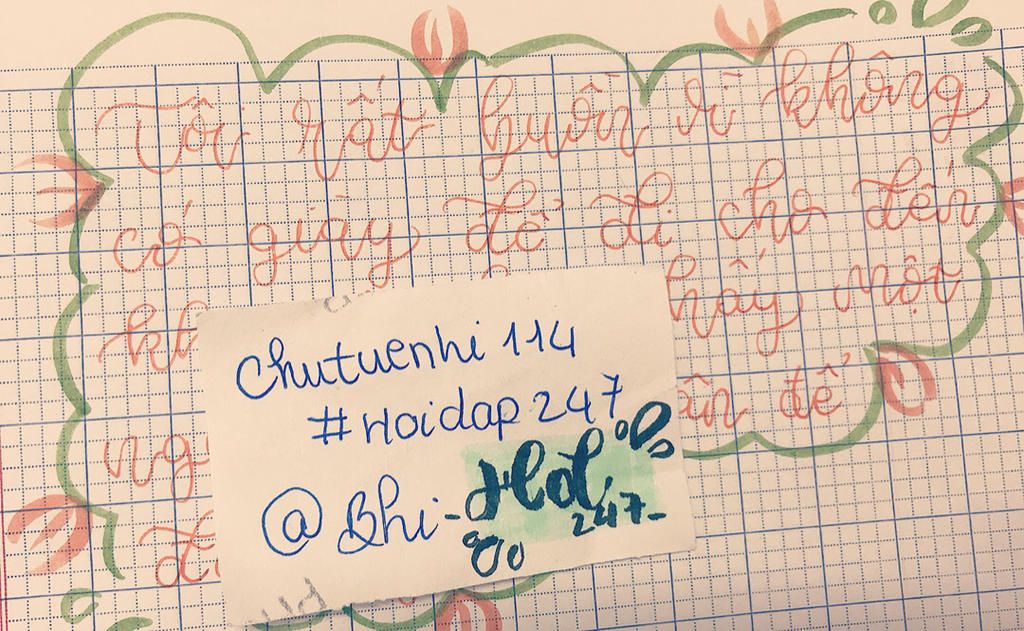 Tôi rất buồn vì không
có giày để đi cho đến
hấy một
ng
ân để
chutuenhi 114
#Hoidap247
@Bhi-Hd
247-